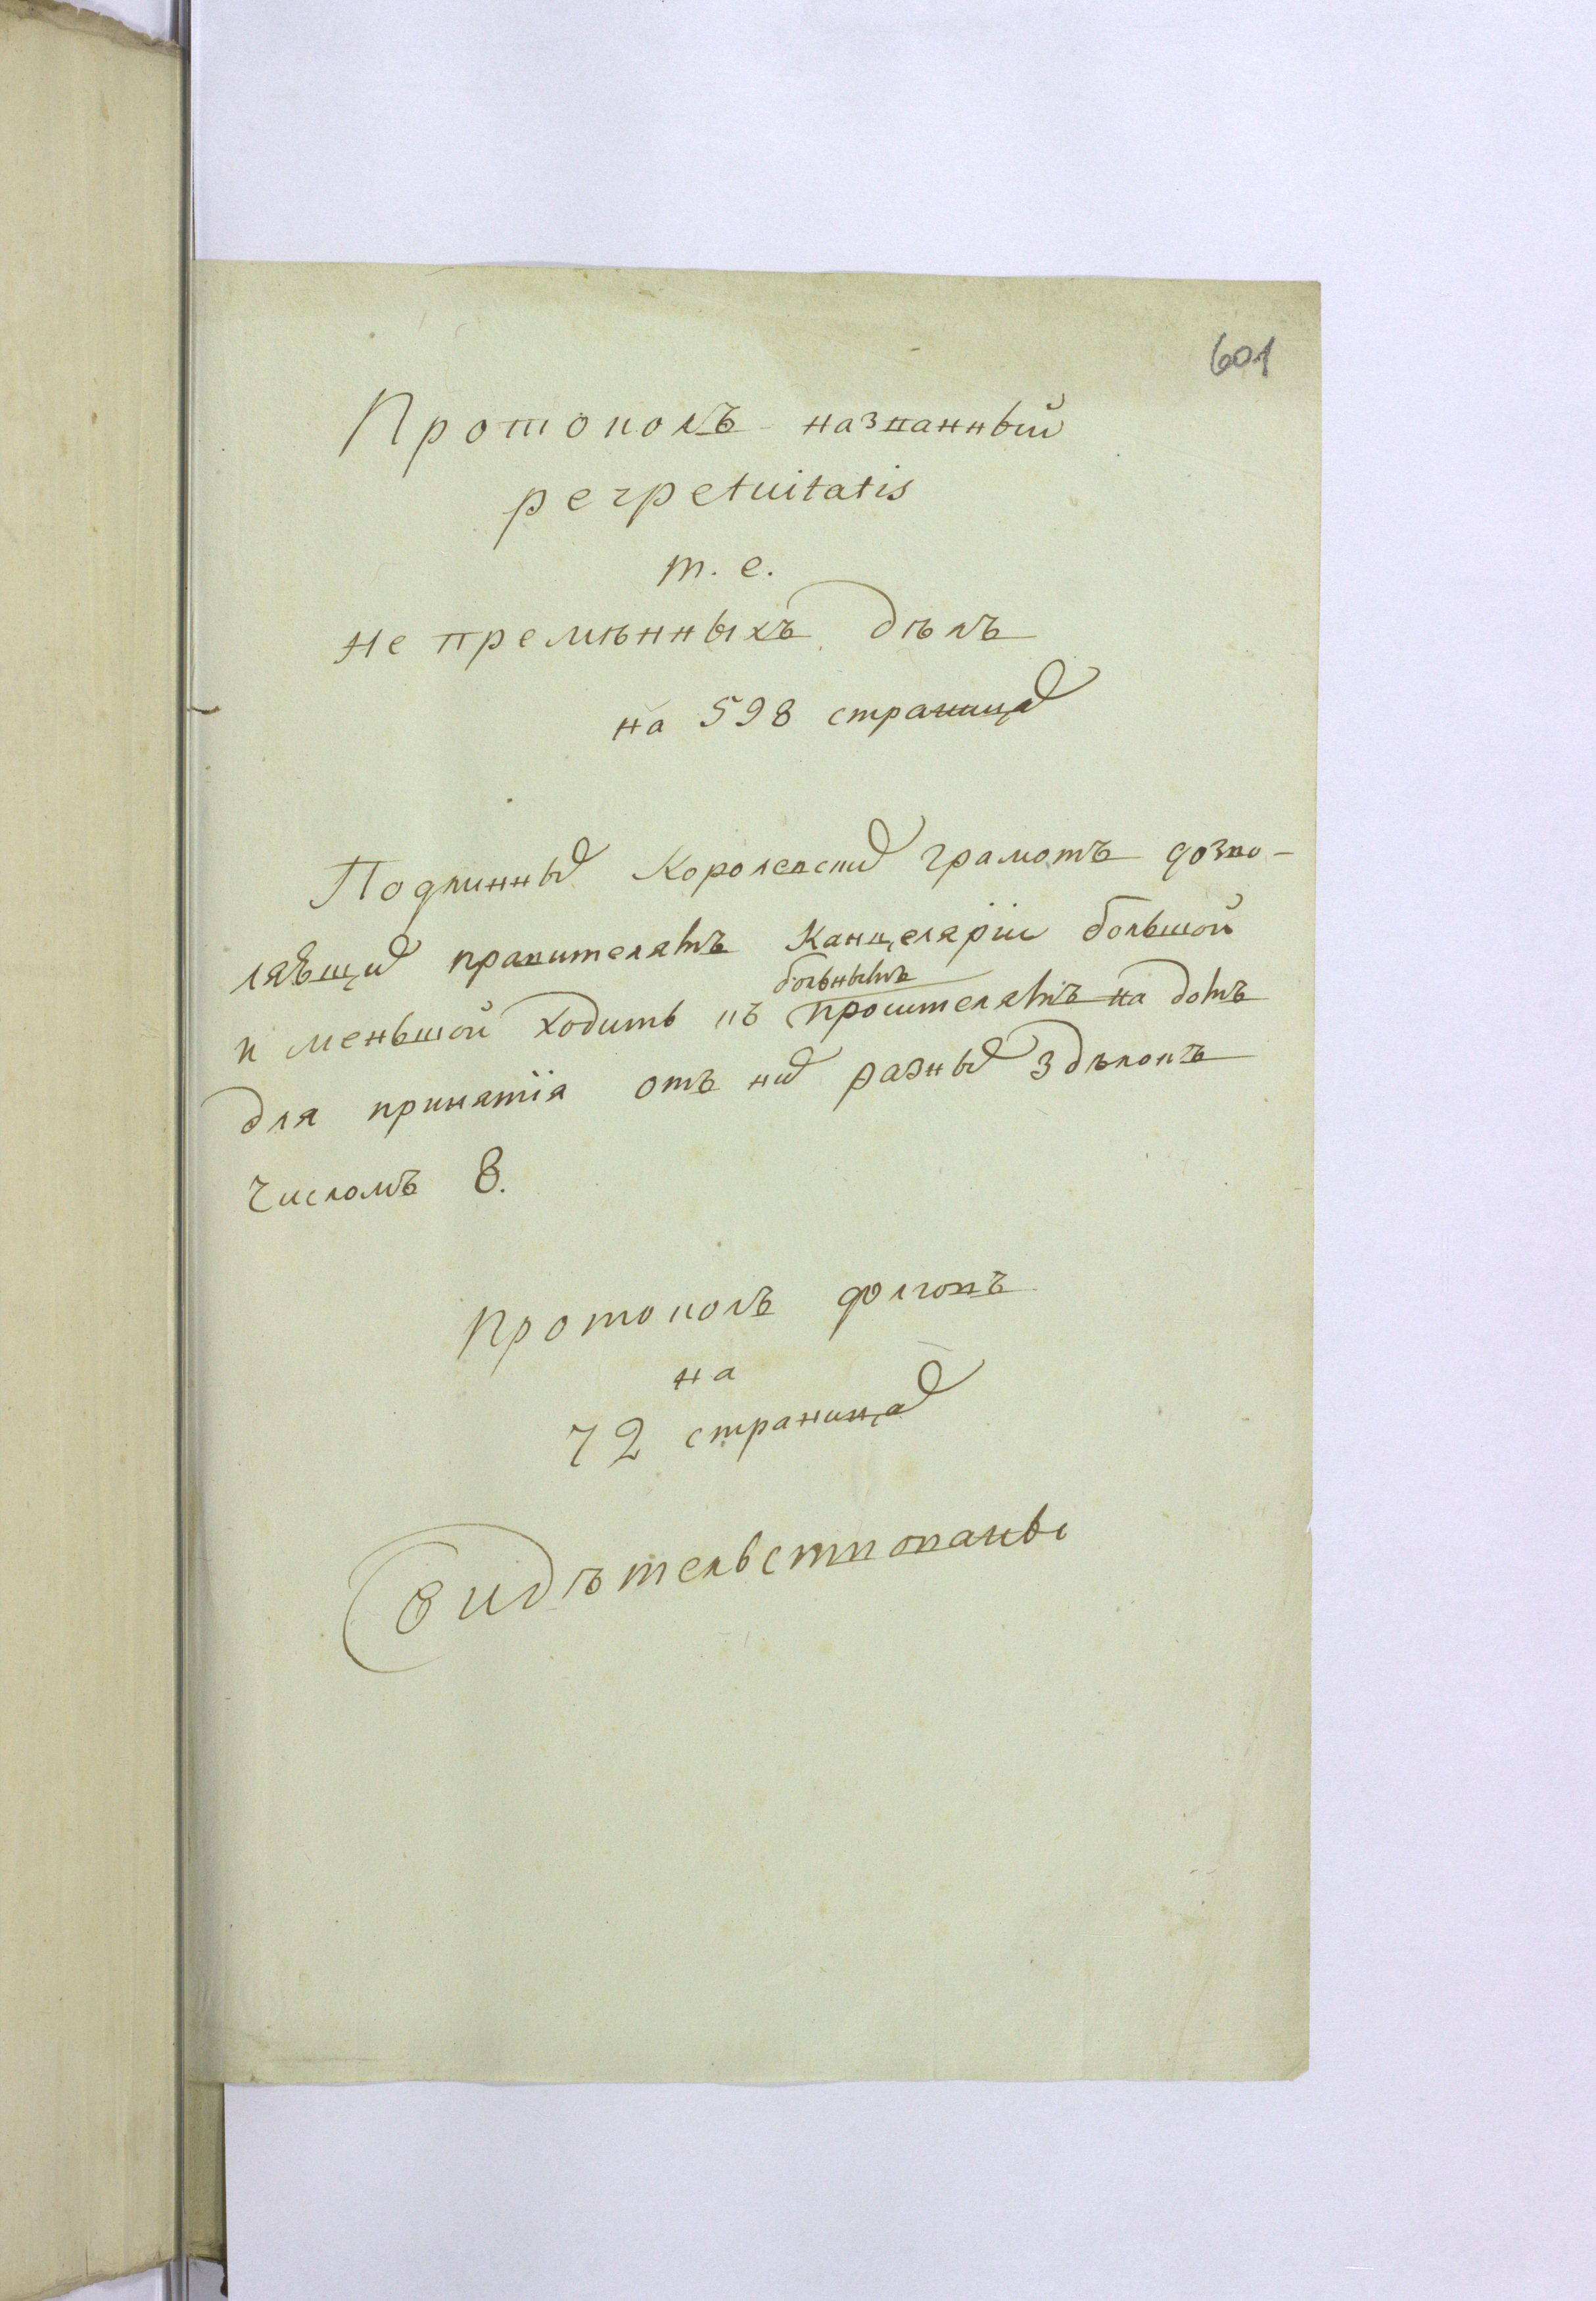 601
Протоколъ названный
perpetuitatis
т. е.
не премѣнныхъ дѣлъ
на 598 страницахъ
Подлинныхъ Королевскихъ грамотъ дозво-
ляющихъ правителямъ Канцелярiи большой
и меньшой ходить къ больнымъ просителямъ на домъ
для принятiя отъ нихъ разныхъ здѣлокъ
числомъ 8.
Протоколъ долговъ
на
72 страницахъ
Свидѣтельствованы